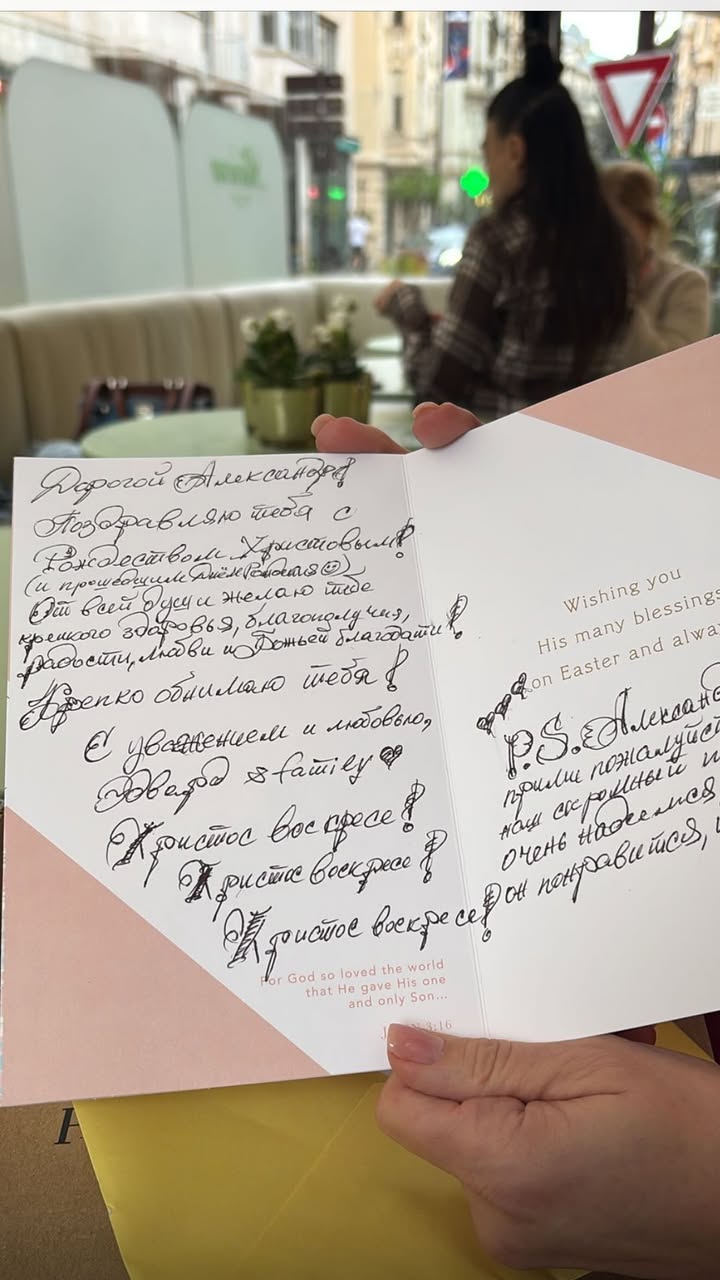 Дорогой Александр!
Поздравляю тебя с
Рождеством Христовым!
(и прошедшим Днём Рождения ☺)
От всей души желаю тебе
крепкого здоровья, благополучия,
радости, любви и Божьей благодати!
Крепко обнимаю тебя!
С уважением и любовью,
Эдвард & family ♥
Христос воскресе!
Христос воскресе!
Христос воскресе!
For God so loved the world
that He gave His one
and only Son...
3:16
Wishing you
His many blessings
on Easter and alwa
P.S. Александ
прими пожалуйст
наш скромный п
очень надеемся,
он понравится,